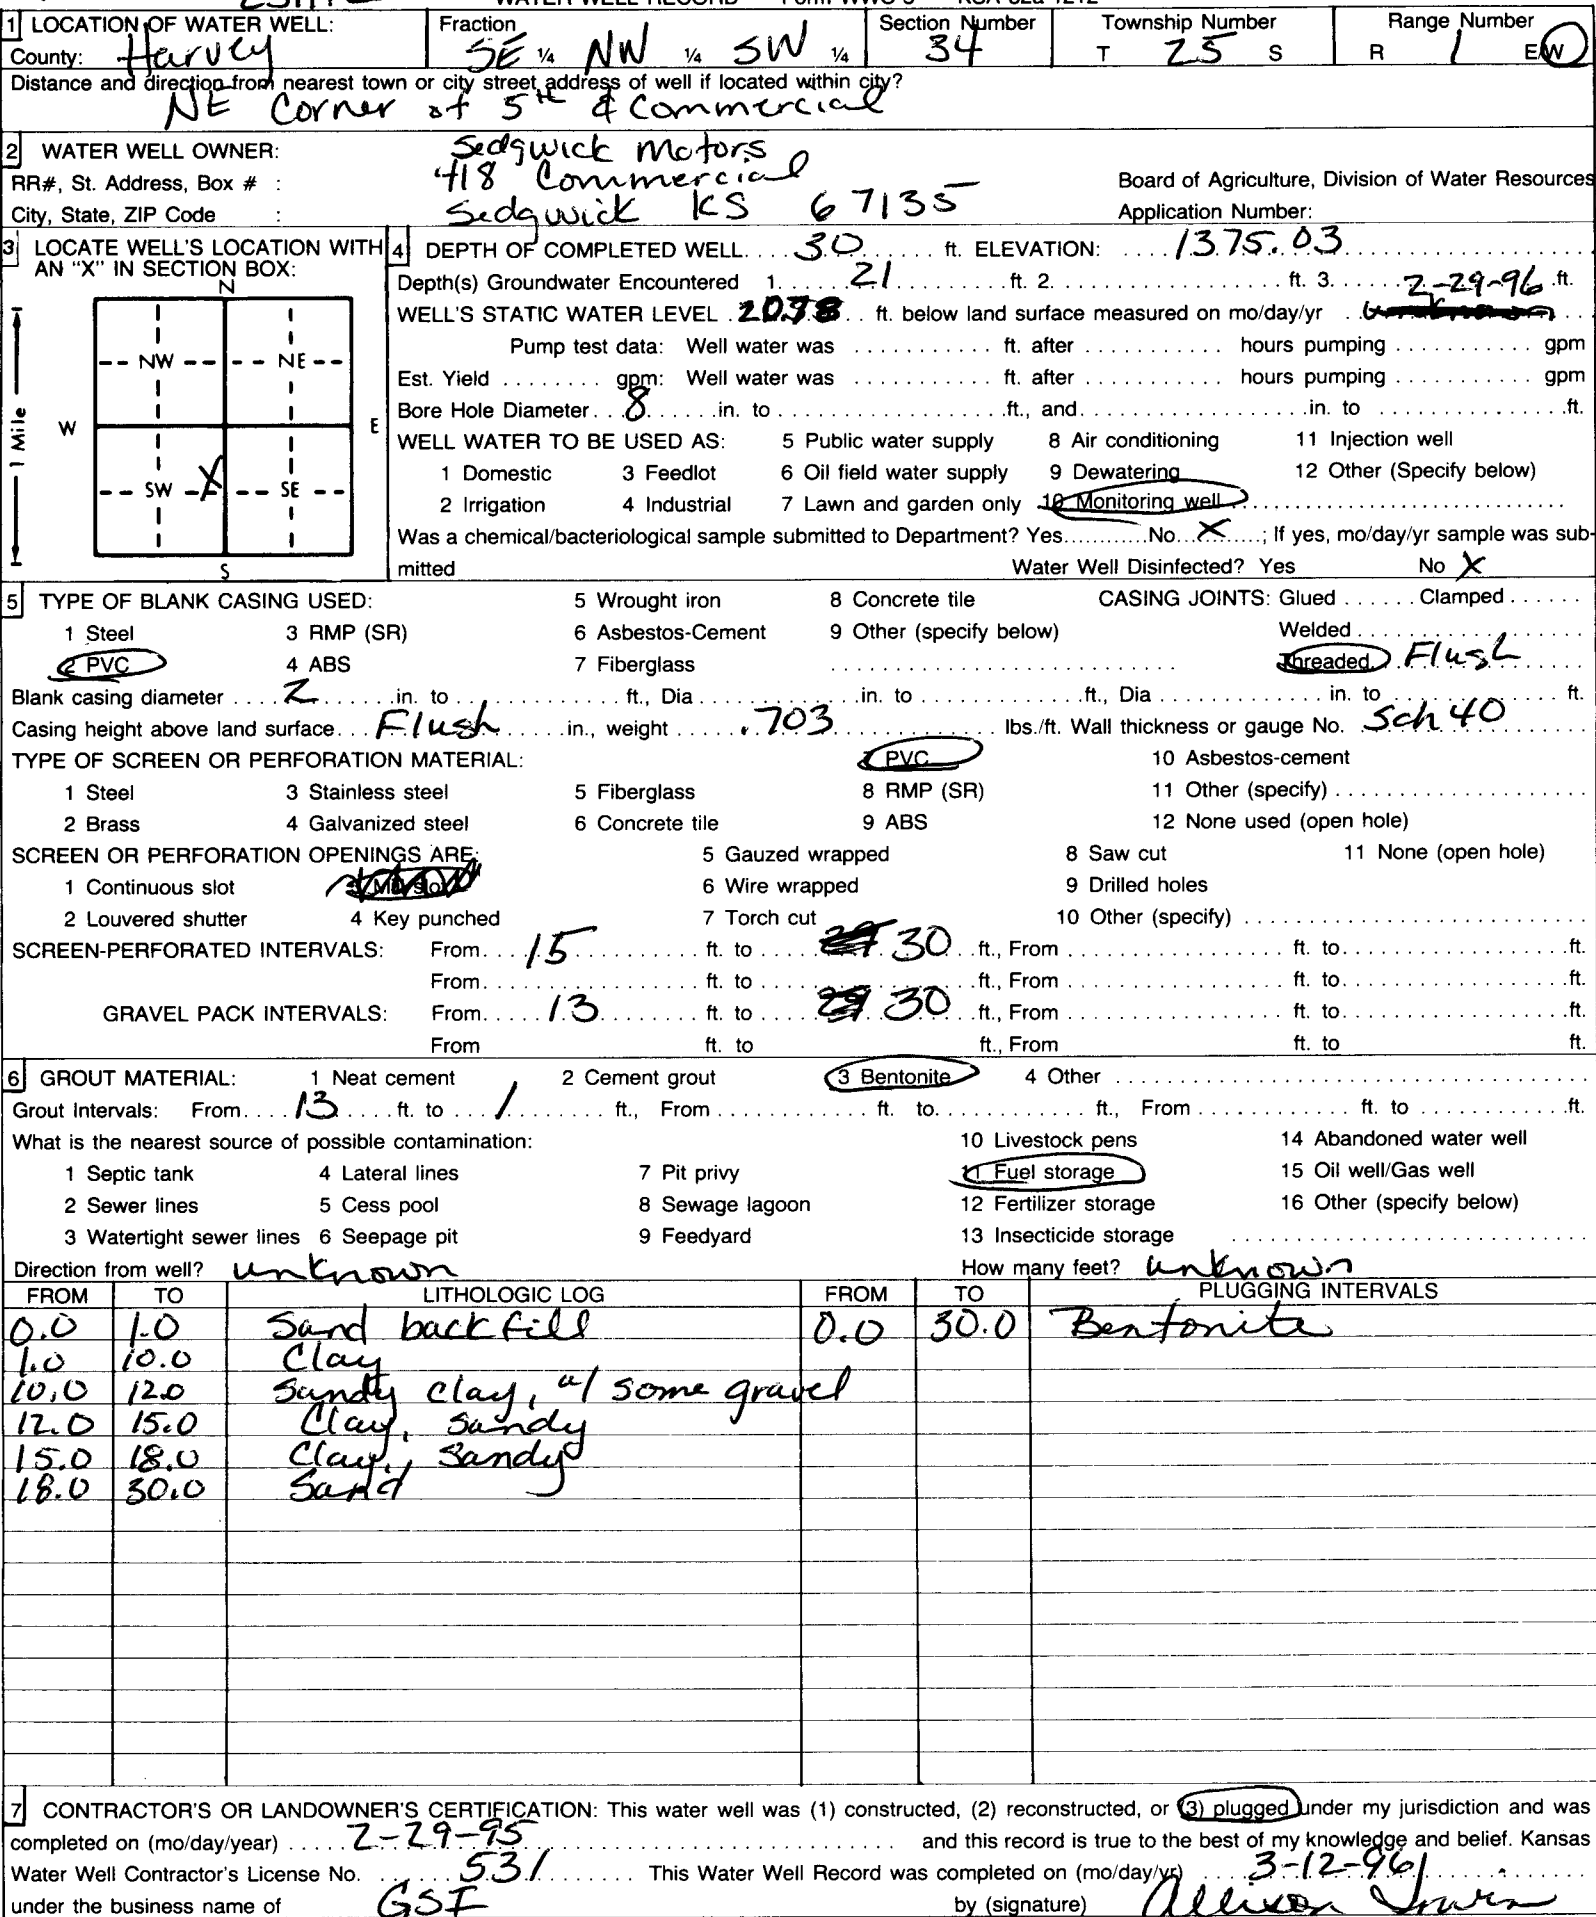 WATER WELL RECORD Form WWC-5 KSA 82a-1212
1 LOCATION OF WATER WELL: Fraction Section Number Township Number Range Number
County: Harvey SE ¼ NW ¼ SW ¼ 34 T 25 S R 1 E/W
Distance and direction from nearest town or city street address of well if located within city?
NE Corner of 5th & Commercial
2 WATER WELL OWNER: Sedgwick Motors
RR#, St. Address, Box # : 418 Commercial Board of Agriculture, Division of Water Resources
City, State, ZIP Code : Sedgwick KS 67135 Application Number:
3 LOCATE WELL'S LOCATION WITH AN "X" IN SECTION BOX:
N
NW NE
W E
SW X SE
S
1 Mile
4 DEPTH OF COMPLETED WELL.... 30 ...... ft. ELEVATION: .... 1375.03 ....
Depth(s) Groundwater Encountered 1. 21 ft. 2. ft. 3. 2-29-96 ft.
WELL'S STATIC WATER LEVEL ft. below land surface measured on mo/day/yr
Pump test data: Well water was .......... ft. after .......... hours pumping .......... gpm
Est. Yield ........ gpm: Well water was .......... ft. after .......... hours pumping .......... gpm
Bore Hole Diameter... 8 ......in. to ..........ft., and..........in. to ..........ft.
WELL WATER TO BE USED AS: 5 Public water supply 8 Air conditioning 11 Injection well
1 Domestic 3 Feedlot 6 Oil field water supply 9 Dewatering 12 Other (Specify below)
2 Irrigation 4 Industrial 7 Lawn and garden only 10 Monitoring well ..........
Was a chemical/bacteriological sample submitted to Department? Yes..........No... X ....; If yes, mo/day/yr sample was sub-
mitted Water Well Disinfected? Yes No X
5 TYPE OF BLANK CASING USED: 5 Wrought iron 8 Concrete tile CASING JOINTS: Glued ...... Clamped ......
1 Steel 3 RMP (SR) 6 Asbestos-Cement 9 Other (specify below) Welded ..........
2 PVC 4 ABS 7 Fiberglass .......... Threaded. Flush
Blank casing diameter .... 2 ......in. to ..........ft., Dia ..........in. to ..........ft., Dia ..........in. to ..........ft.
Casing height above land surface... Flush .....in., weight ..... .703 .......... lbs./ft. Wall thickness or gauge No. Sch 40
TYPE OF SCREEN OR PERFORATION MATERIAL: 7 PVC 10 Asbestos-cement
1 Steel 3 Stainless steel 5 Fiberglass 8 RMP (SR) 11 Other (specify) ..........
2 Brass 4 Galvanized steel 6 Concrete tile 9 ABS 12 None used (open hole)
SCREEN OR PERFORATION OPENINGS ARE: 5 Gauzed wrapped 8 Saw cut 11 None (open hole)
1 Continuous slot 3 Mill slot 6 Wire wrapped 9 Drilled holes
2 Louvered shutter 4 Key punched 7 Torch cut 10 Other (specify) ..........
SCREEN-PERFORATED INTERVALS: From.... 15 ..........ft. to .... 30 ...ft., From ..........ft. to..........ft.
From..........ft. to ..........ft., From ..........ft. to..........ft.
GRAVEL PACK INTERVALS: From.... 13 ..........ft. to .... 30 ...ft., From ..........ft. to..........ft.
From ft. to ft., From ft. to ft.
6 GROUT MATERIAL: 1 Neat cement 2 Cement grout 3 Bentonite 4 Other ..........
Grout Intervals: From.... 13 ....ft. to ... 1 ........ft., From ..........ft. to..........ft., From ..........ft. to ..........ft.
What is the nearest source of possible contamination: 10 Livestock pens 14 Abandoned water well
1 Septic tank 4 Lateral lines 7 Pit privy 11 Fuel storage 15 Oil well/Gas well
2 Sewer lines 5 Cess pool 8 Sewage lagoon 12 Fertilizer storage 16 Other (specify below)
3 Watertight sewer lines 6 Seepage pit 9 Feedyard 13 Insecticide storage ..........
Direction from well? unknown How many feet? unknown
FROM TO LITHOLOGIC LOG FROM TO PLUGGING INTERVALS
0.0 1.0 Sand backfill 0.0 30.0 Bentonite
1.0 10.0 Clay
10.0 12.0 Sandy clay, w/ some gravel
12.0 15.0 Clay, Sandy
15.0 18.0 Clay, Sandy
18.0 30.0 Sand
7 CONTRACTOR'S OR LANDOWNER'S CERTIFICATION: This water well was (1) constructed, (2) reconstructed, or (3) plugged under my jurisdiction and was
completed on (mo/day/year) ..... 2-29-95 .......... and this record is true to the best of my knowledge and belief. Kansas
Water Well Contractor's License No. ....... 531 .......... This Water Well Record was completed on (mo/day/yr) ... 3-12-96 ....
under the business name of GSI by (signature) Allison